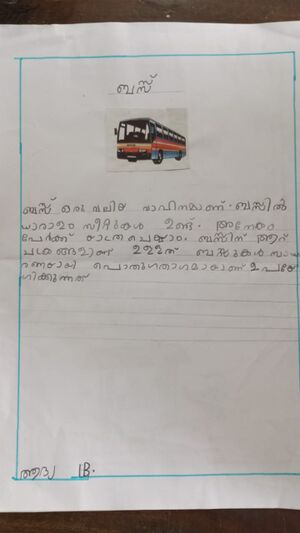 ബസ്സ്
ബസ്സ് ഒരു വലിയ വാഹനമാണ്. ബസ്സിൽ
ധാരാളം സീറ്റുകൾ ഉണ്ട്. അനേകം
പേർക്ക് യാത്ര ചെയ്യാം. ബസ്സിന് ആറ്
ചക്രങ്ങളാണ് ഉള്ളത് ബസ്സുകൾ സാധ
രണയായി പൊതുഗതാഗമായാണ് ഉപയോ
ഗിക്കുന്നത്
ആദ്യ 1B.